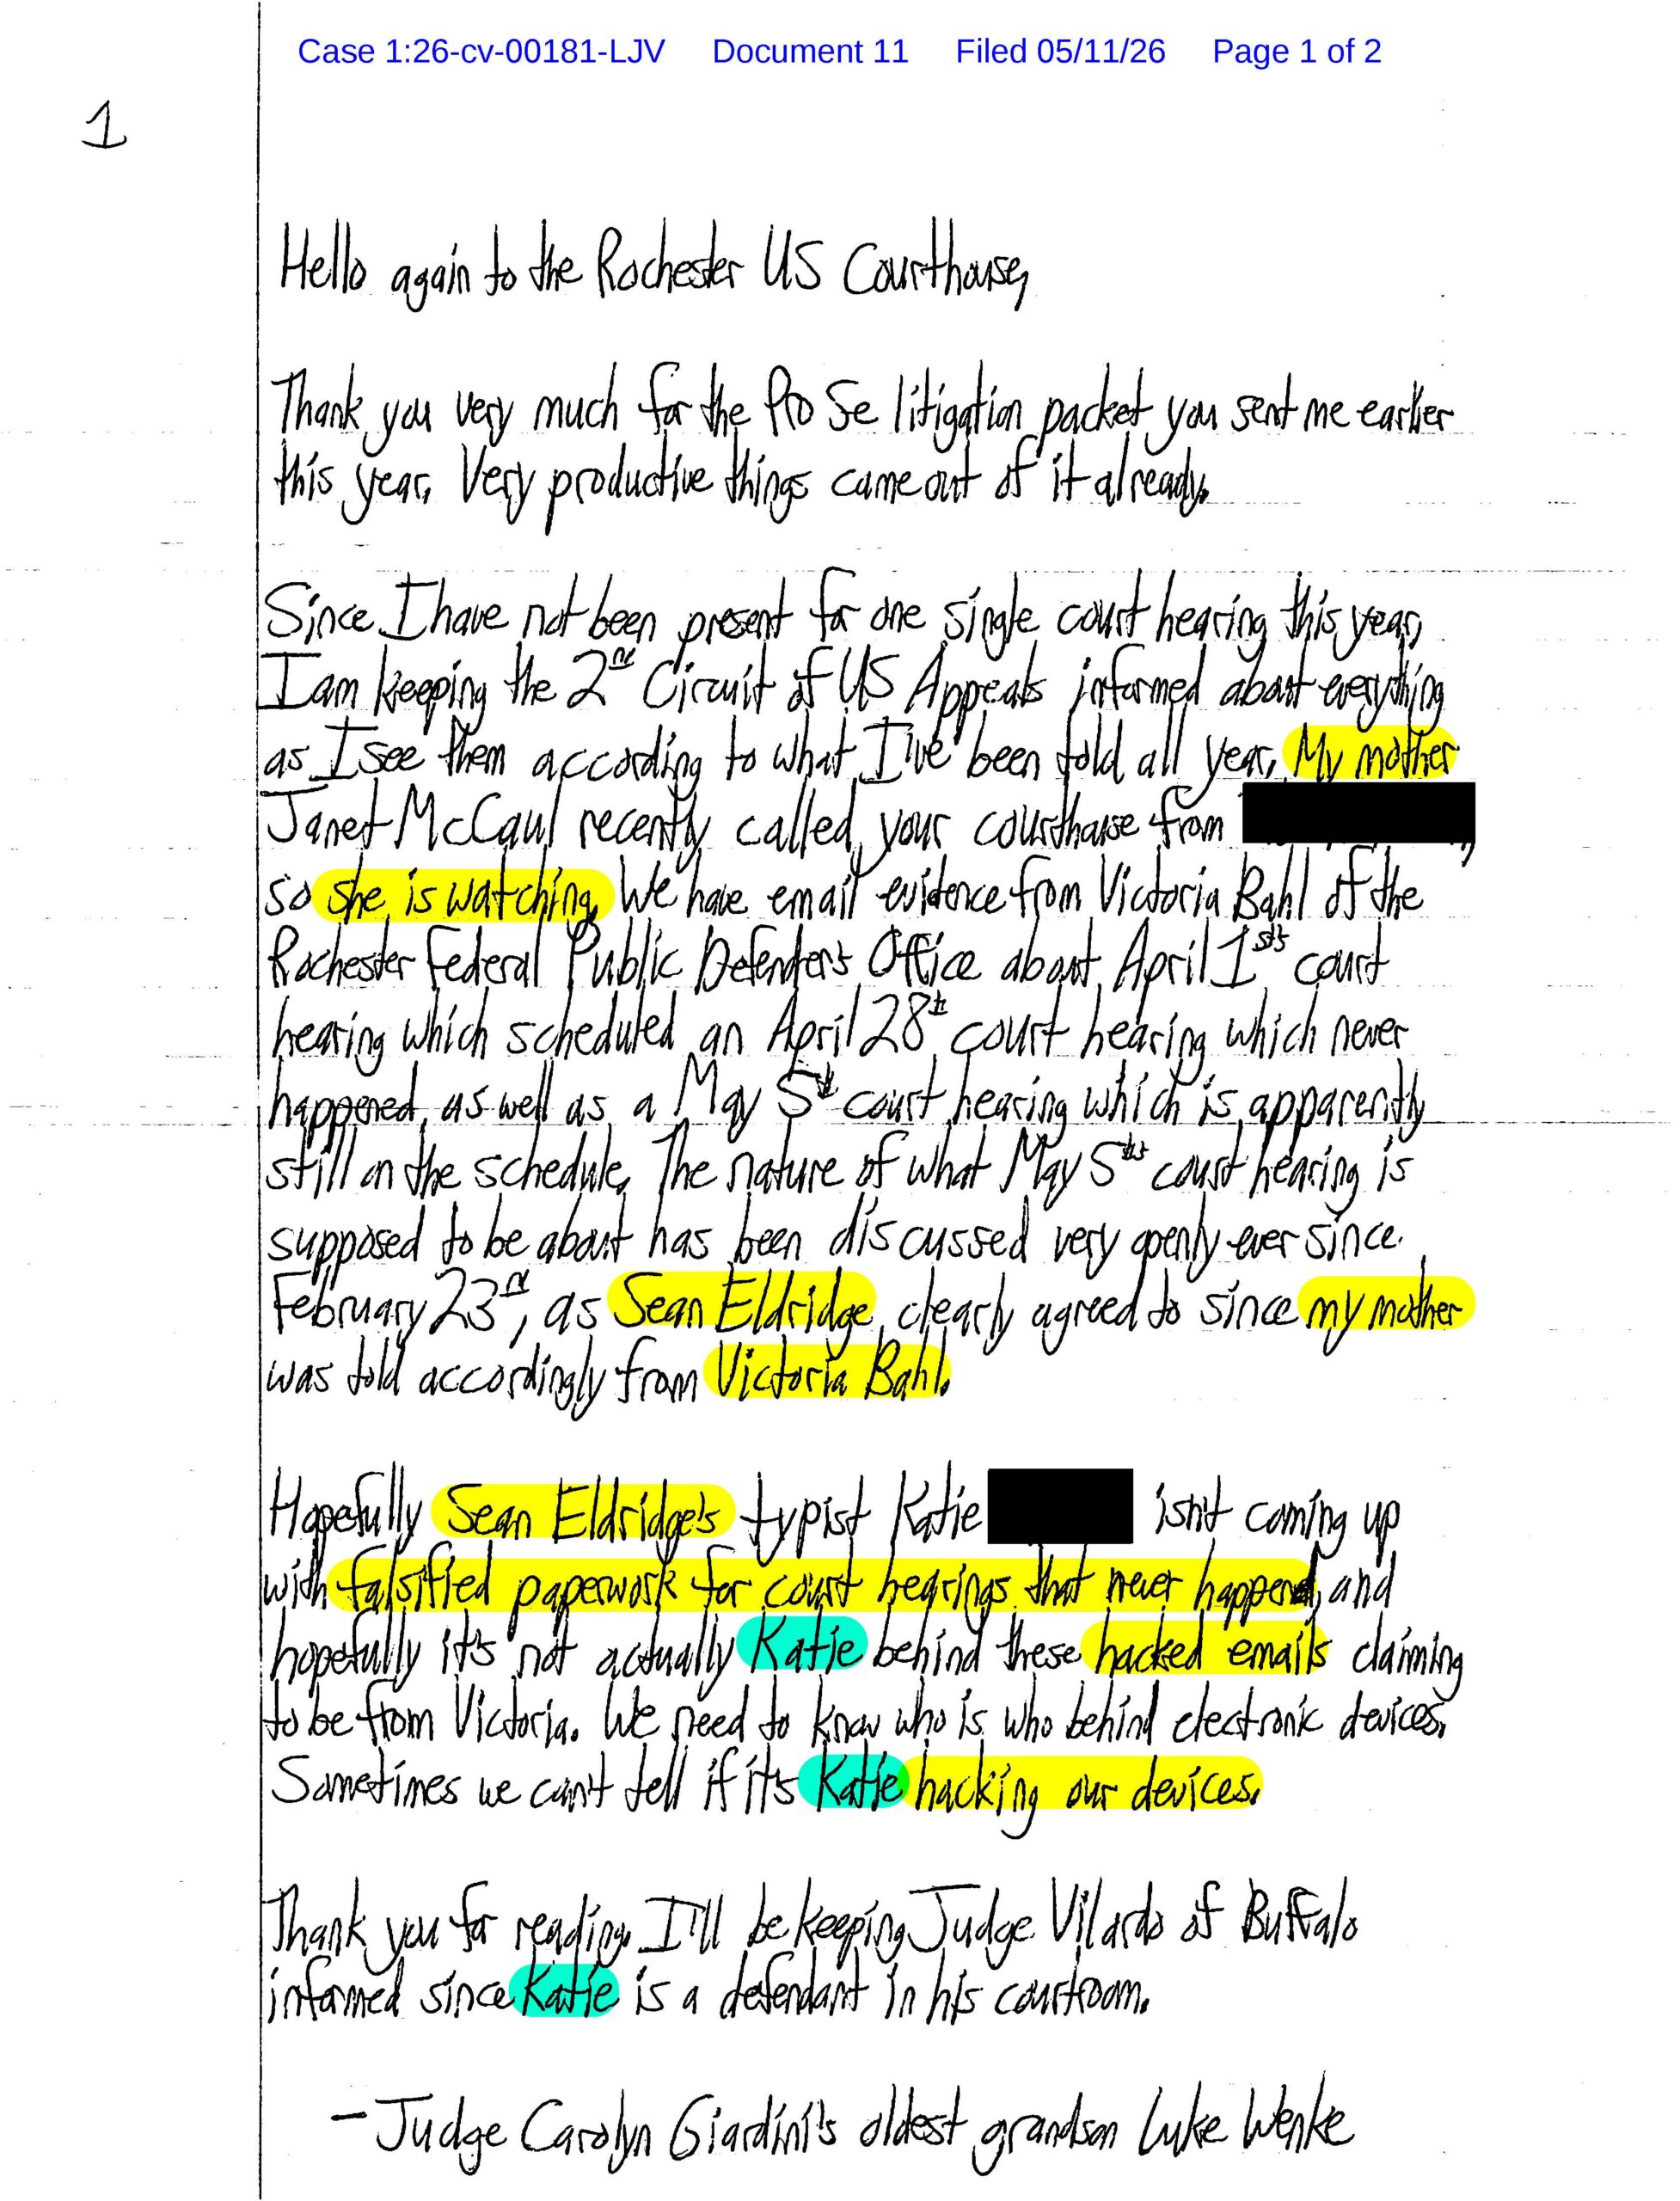 Case 1:26-cv-00181-LJV Document 11 Filed 05/11/26 Page 1 of 2
1
Hello again to the Rochester US Courthouse,
Thank you very much for the Pro Se litigation packet you sent me earlier
this year. Very productive things came out of it already.
Since I have not been present for one single court hearing this year,
I am keeping the 2nd Circuit of US Appeals informed about everything
as I see them according to what I've been told all year. My mother
Janet McCaul recently called your courthouse from
so she is watching. We have email evidence from Victoria Bahl of the
Rochester Federal Public Defender's Office about April 1st's court
hearing which scheduled an April 28th court hearing which never
happened, as well as a May 5th court hearing which is apparently
still on the schedule. The nature of what May 5th's court hearing is
supposed to be about has been discussed very openly ever since
February 23rd, as Sean Eldridge clearly agreed to since my mother
was told accordingly from Victoria Bahl.
Hopefully Sean Eldridge's typist Katie isn't coming up
with falsified paperwork for court hearings that never happened, and
hopefully it's not actually Katie behind these hacked emails claiming
to be from Victoria. We need to know who is who behind electronic devices.
Sometimes we can't tell if it's Katie hacking our devices.
Thank you for reading. I'll be keeping Judge Vilardo of Buffalo
informed since Katie is a defendant in his courtroom.
- Judge Carolyn Giardini's oldest grandson Luke Wenke